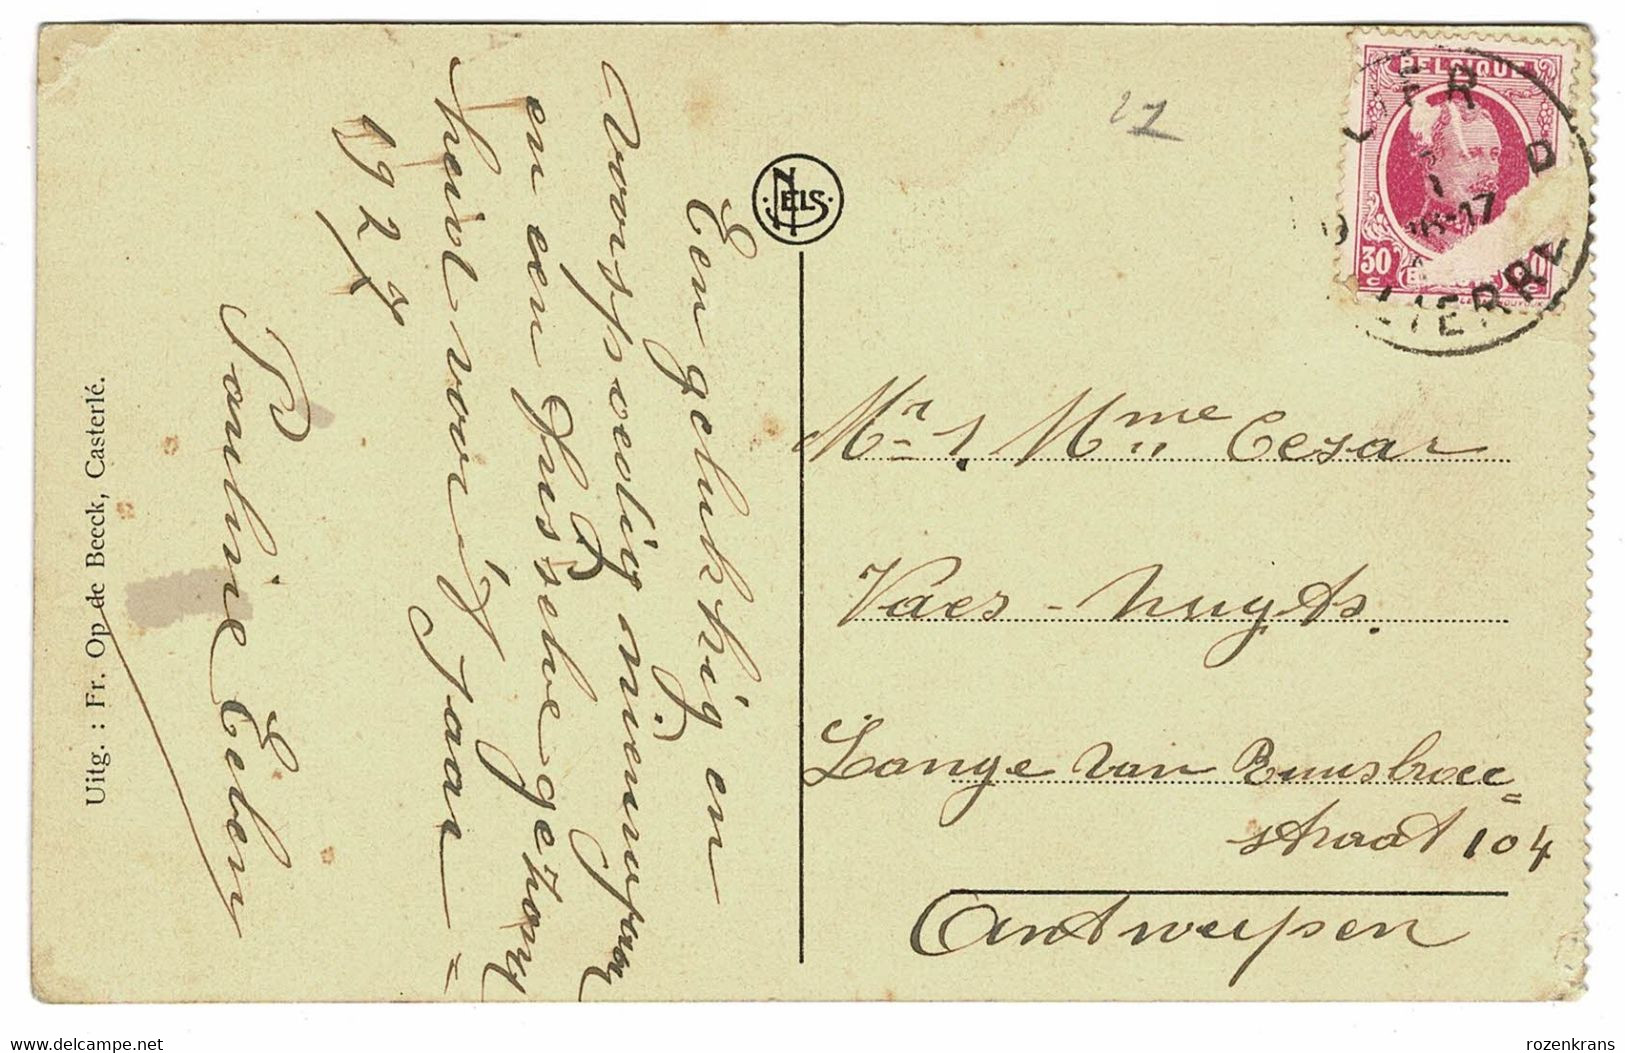 Een gelukkig en
Voorspoedig nieuwjaar
en een zusselve gezond
heid voor 't jaar
1927
Pauline Eelen
Uitg. : Fr. Op de Beeck, Casterlé.
NELS
27
BELGIQUE
30 c
LIER
16-17
D
LIERRE
Mr. Mme Cesar
Vaes - Nuyts.
Lange van Ruusbroec=
straat 104
Antwerpen
delcampe.net
rozenkrans